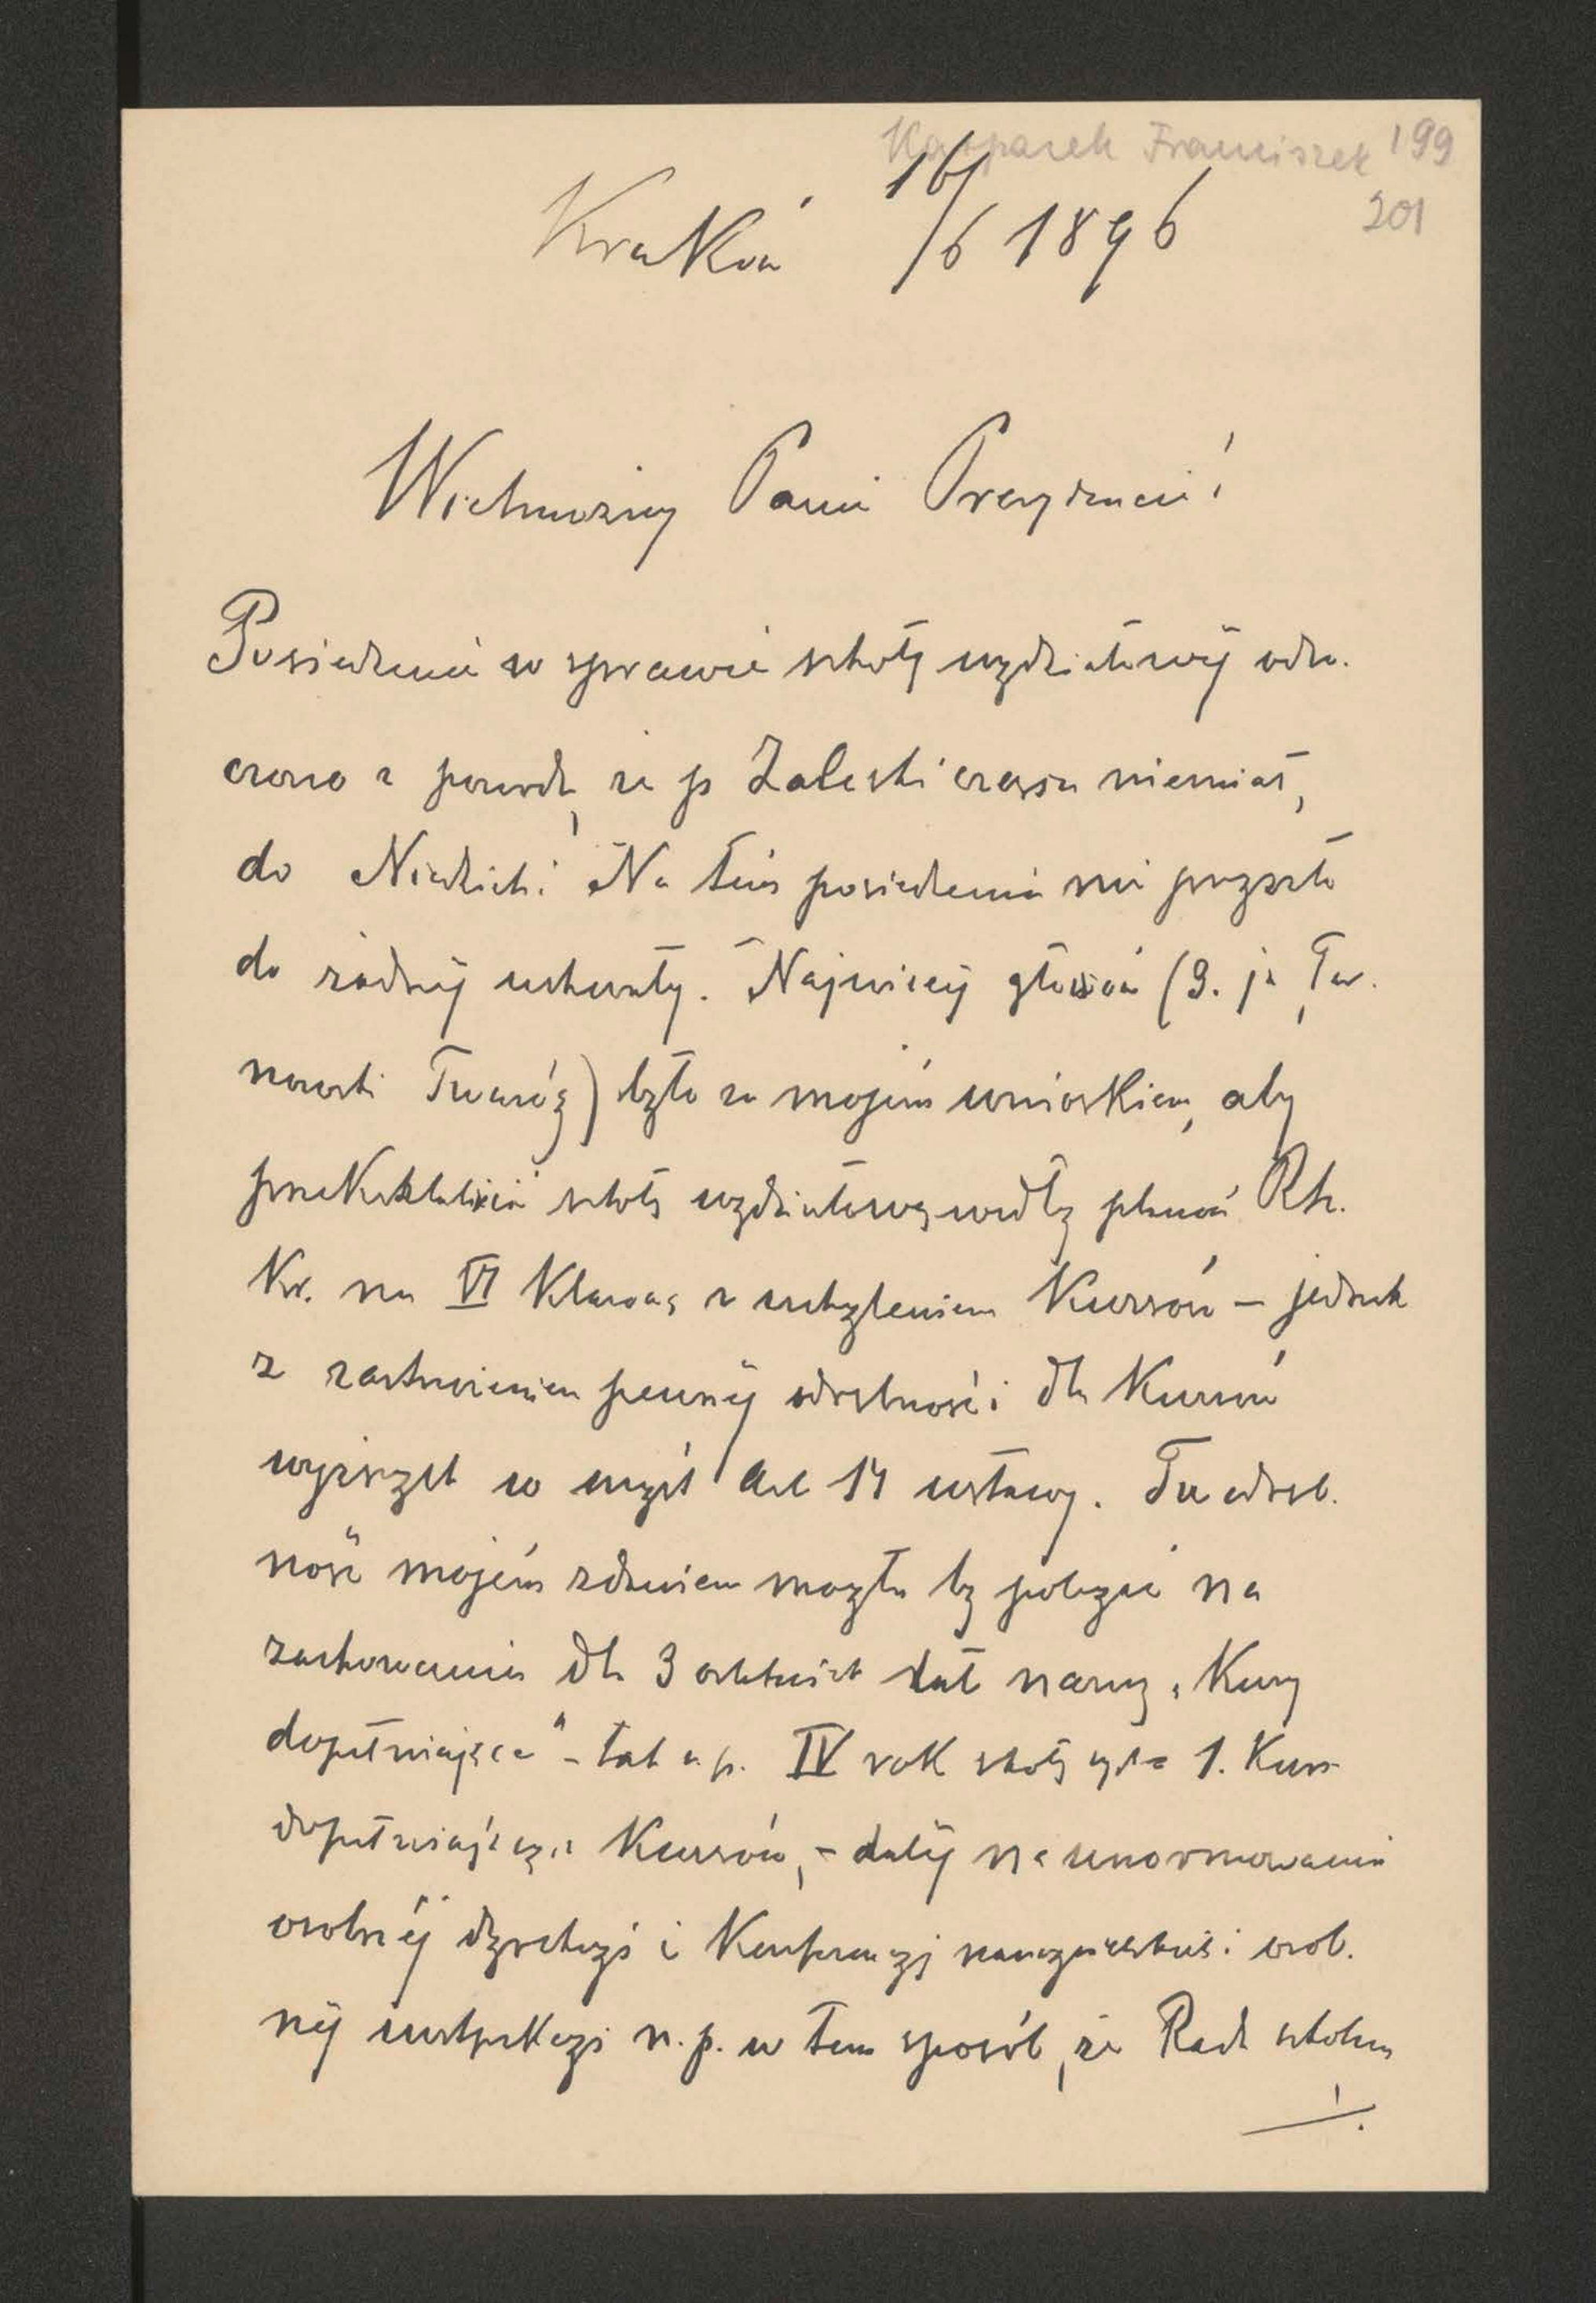 Kasparek Franciszek 199
201
Kraków 16/6 1896
Wielmożny Panie Prezydencie!
Posiedzenie w sprawie szkoły wydziałowéj odro-
czono z powodu, że p Zaleski czasu niemiał,
do Niedzieli. Na tém posiedzeniu nie przyszło
do żadnéj uchwały. Najwięcéj głosów (3. ja, Tar-
nowski Twaróg) było za mojém wnioskiem, aby
przekształcić szkołę wydziałową wedłg planów Rk.
Kr. na VI klasową z uchyleniem Kursów – jednak
z zastrzeżeniem pewnéj odrębności dla Kursów
wyższych w myśl Art 14 ustawy. Ta odręb-
ność mojém zdaniem mogła by polegać na
zachowaniu dla 3 ostatnich lat nazwy „Kursy
dopełniające" – tak n. p. IV rok szkoły 1. Kurs
dopełniających Kursów, – daléj na unormowaniu
osobnéj dyrekcyi i Konferencyi nauczycielskiéj i osob-
néj inspekcyi n. p. w ten sposób, że Rada szkolna
./.